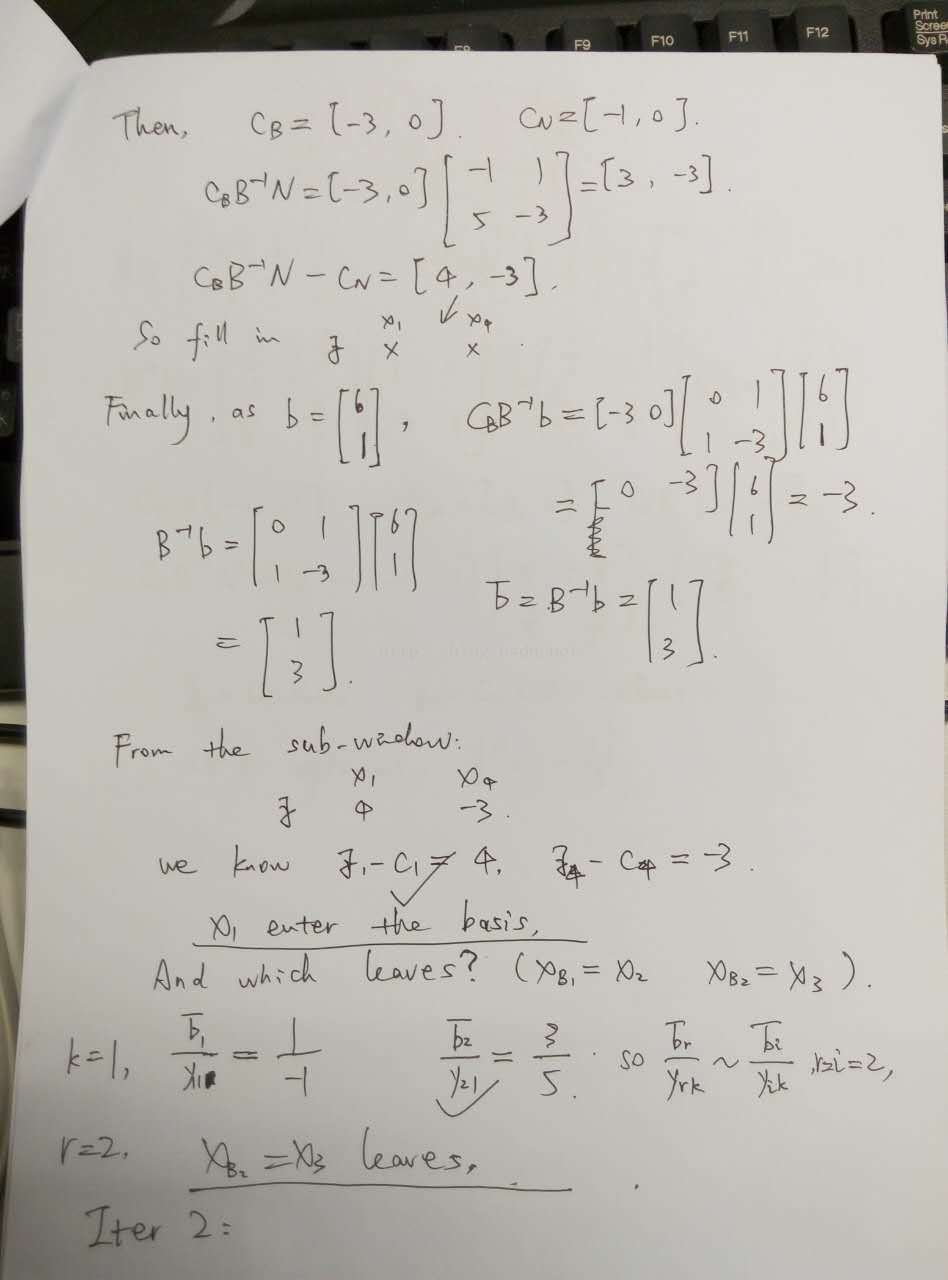 F8 F9 F10 F11 F12 Print Screen Sys R
Then, C_B = [-3, 0]. C_N = [-1, 0].
C_B B⁻¹N = [-3, 0] [-1 1; 5 -3] = [3, -3].
C_B B⁻¹N - C_N = [4, -3].
So fill in z x₁ ↙ x₄
x x.
Finally, as b = [6; 1], C_B B⁻¹b = [-3 0] [0 1; 1 -3] [6; 1]
= [0 -3] [6; 1] = -3.
B⁻¹b = [0 1; 1 -3] [6; 1]
= [1; 3].
b̄ = B⁻¹b = [1; 3].
From the sub-window:
x₁ x₄
z 4 -3.
we know z₁ - c₁ = 4, z₄ - c₄ = -3.
x₁ enter the basis,
And which leaves? (x_B₁ = x₂ x_B₂ = x₃).
k=1, b̄₁/y₁₁ = 1/-1 b̄₂/y₂₁ = 3/5. so b̄r/yrk ~ b̄i/yik, r=i=2,
r=2. x_B₂ = x₃ leaves.
Iter 2: